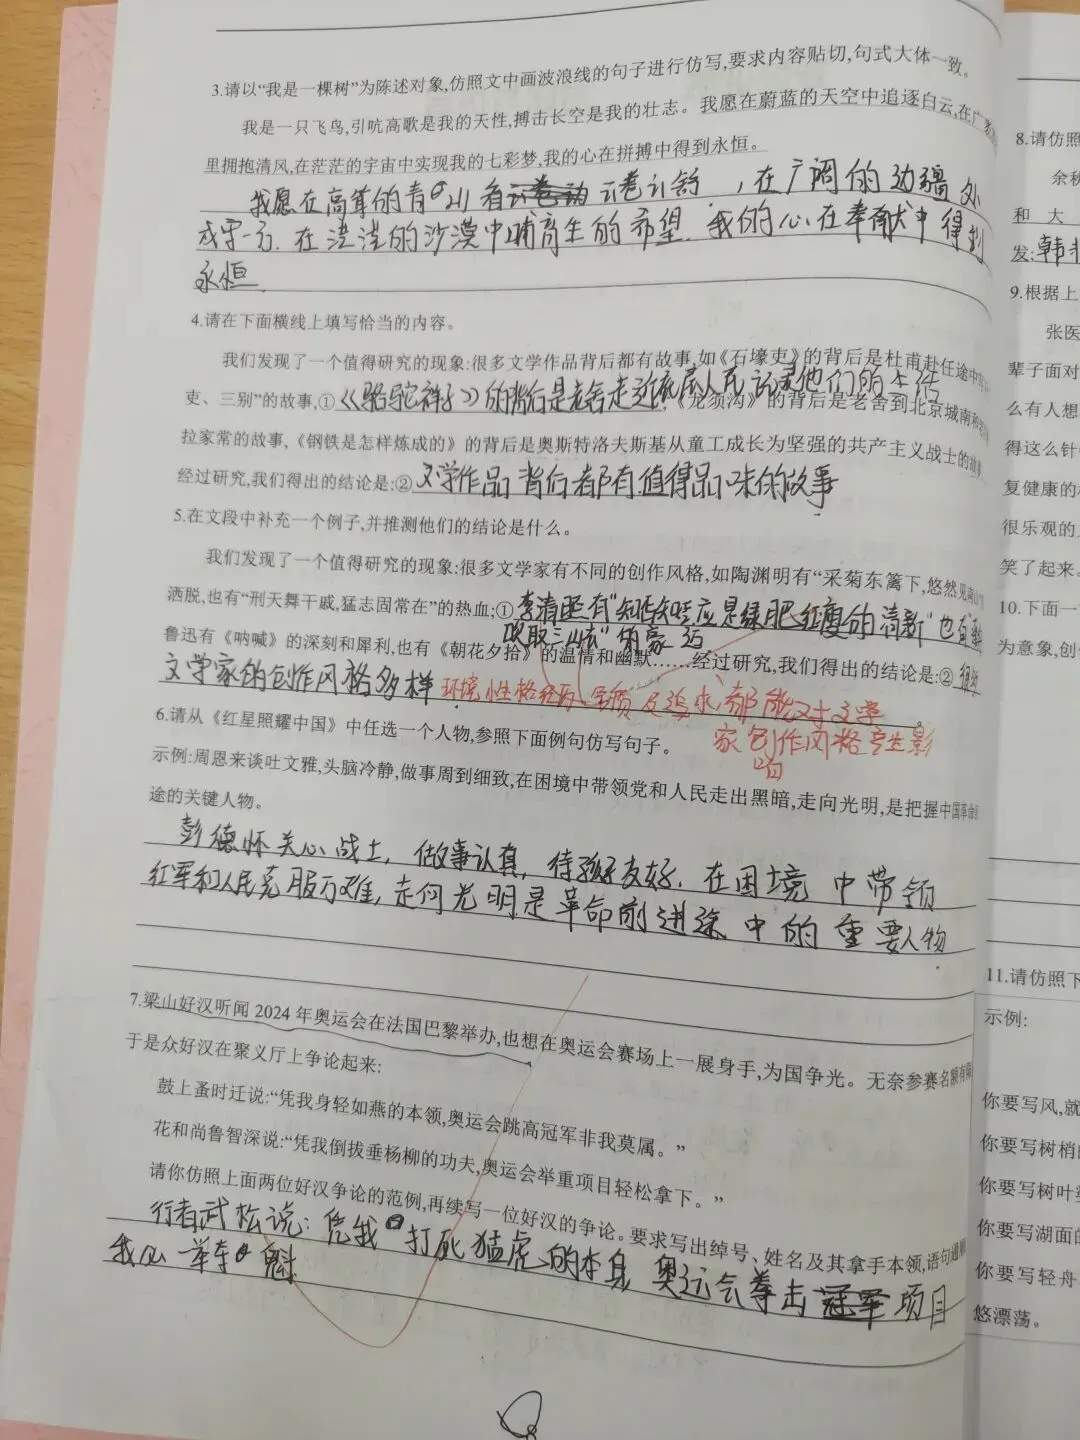 3.请以“我是一棵树”为陈述对象,仿照文中画波浪线的句子进行仿写,要求内容贴切,句式大体一致。
我是一只飞鸟,引吭高歌是我的天性,搏击长空是我的壮志。我愿在蔚蓝的天空中追逐白云,在广
里拥抱清风,在茫茫的宇宙中实现我的七彩梦,我的心在拼搏中得到永恒。
我愿在高耸的青山看云卷云舒,在广阔的边疆处
戍守一方.在茫茫的沙漠中哺育生的希望.我的心在奉献中得到
永恒.
4.请在下面横线上填写恰当的内容。
我们发现了一个值得研究的现象:很多文学作品背后都有故事,如《石壕吏》的背后是杜甫赴任途中
吏、三别”的故事,①《骆驼祥子》的背后是老舍走近底层人民 他们的生活《龙须沟》的背后是老舍到北京城南和
拉家常的故事,《钢铁是怎样炼成的》的背后是奥斯特洛夫斯基从童工成长为坚强的共产主义战士的故事
经过研究,我们得出的结论是:②文学作品背后都有值得品味的故事
5.在文段中补充一个例子,并推测他们的结论是什么。
我们发现了一个值得研究的现象:很多文学家有不同的创作风格,如陶渊明有“采菊东篱下,悠然见南山”
洒脱,也有“刑天舞干戚,猛志固常在”的热血;①李清照有“知否知否应是绿肥红瘦的清新”也有
吹取三山去”的豪迈
鲁迅有《呐喊》的深刻和犀利,也有《朝花夕拾》的温情和幽默……经过研究,我们得出的结论是:②很多
文学家的创作风格多样 环境 性格 经历 及追求,都能对文学
家创作风格产生影
响
6.请从《红星照耀中国》中任选一个人物,参照下面例句仿写句子。
示例:周恩来谈吐文雅,头脑冷静,做事周到细致,在困境中带领党和人民走出黑暗,走向光明,是把握中国革命
途的关键人物。
彭德怀关心战士,做事认真,待孩子友好.在困境中带领
红军和人民克服万难,走向光明是革命前进途中的重要人物
7.梁山好汉听闻2024年奥运会在法国巴黎举办,也想在奥运会赛场上一展身手,为国争光。无奈参赛名额有限
于是众好汉在聚义厅上争论起来:
鼓上蚤时迁说:“凭我身轻如燕的本领,奥运会跳高冠军非我莫属。”
花和尚鲁智深说:“凭我倒拔垂杨柳的功夫,奥运会举重项目轻松拿下。”
请你仿照上面两位好汉争论的范例,再续写一位好汉的争论。要求写出绰号、姓名及其拿手本领,语句通顺
行者武松说:凭我打死猛虎的本身 奥运会拳击项目
我必一举夺魁
8.请仿照
余秋
和大
发:韩非
9.根据上
张医
辈子面对
么有人想
得这么针
复健康的
很乐观的
笑了起来。
10.下面一
为意象,创
11.请仿照下
示例:
你要写风,就
你要写树梢
你要写树叶
你要写湖面的
你要写轻舟
悠漂荡。